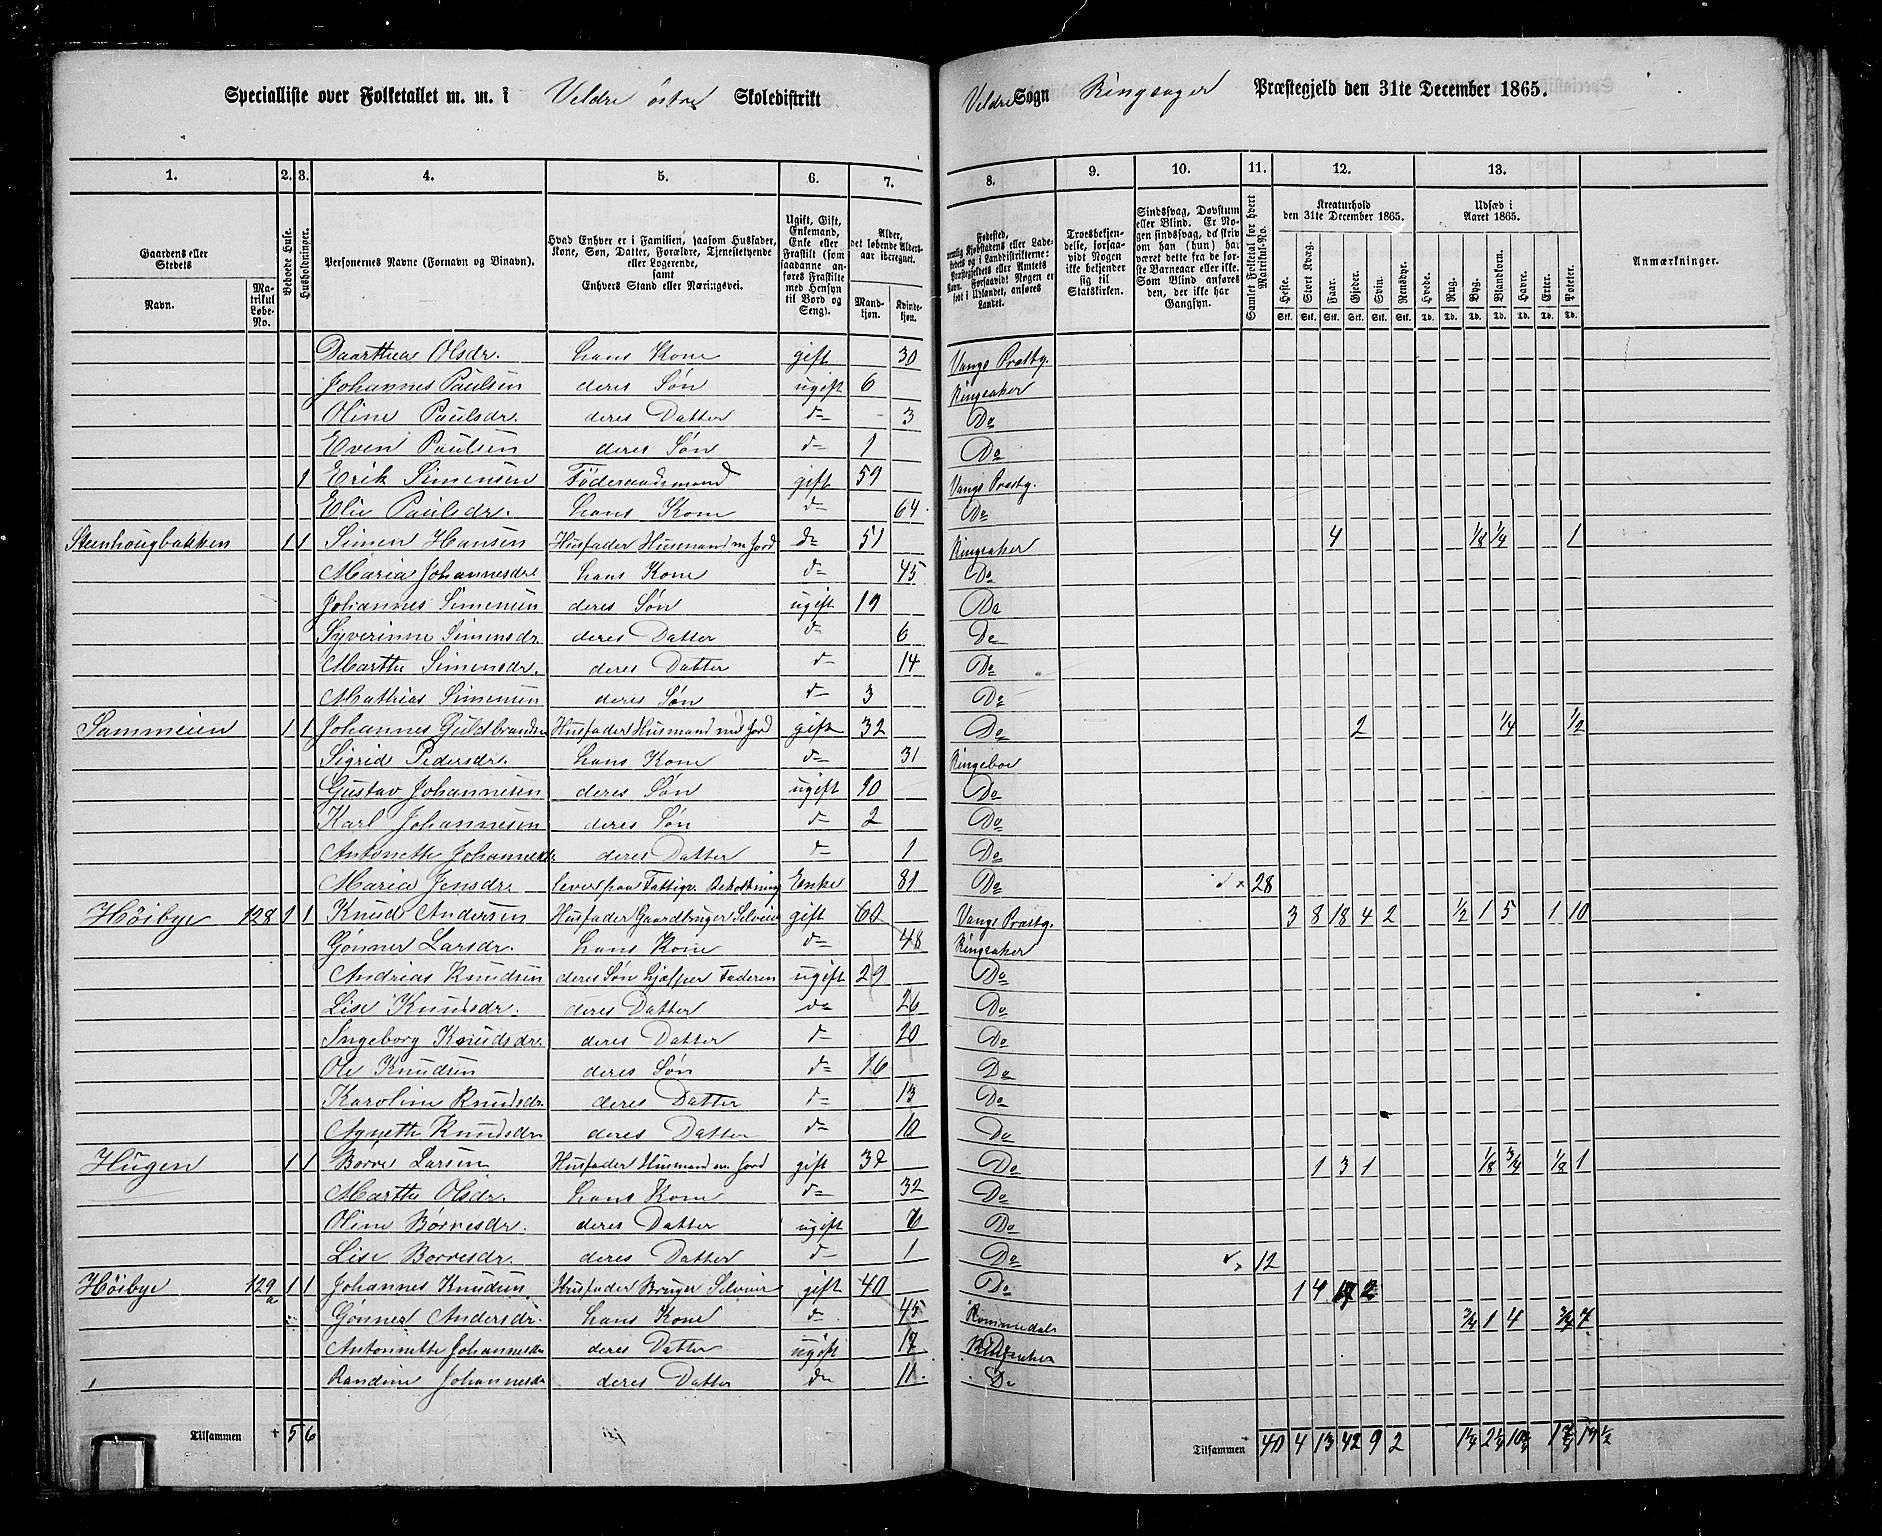 Specialliste over Folketallet m. m. i Veldre östre Skoledistrikt Veldre Sogn Ringsager Præstegjeld den 31te December 1865.
1. 2. 3. 4. 5. 6. 7. 8. 9. 10. 11. 12. 13.
Gaardens eller Stedets
Navn.
Matrikul Løbe-No.
Beboede Huse.
Husholdninger.
Personernes Navne (Fornavn og Binavn).
Hvad Enhver er i Familien, saasom Husfader, Kone, Søn, Datter, Forældre, Tjenestetyende eller Logerende, samt
Enhvers Stand eller Næringsvei.
Ugift, Gift, Enkemand, Enke eller Fraskilt (som saadanne anføres Fraskilte med Hensyn til Bord og Seng).
Alder, det løbende Aldersaar iberegnet.
Mandkjøn. Kvindekjøn.
Troesbekjendelse, forsaavidt Nogen ikke bekjender sig til Statskirken.
Sindssvag, Døvstum eller Blind. Er Nogen sindssvag, da skriv om han (hun) har været dette fra de første Barneaar eller ikke. Som Blind anføres den, der ikke har Gangsyn.
Samlet Folketal for hvert Matrikul-No.
Kreaturhold den 31te December 1865.
Heste. Stort Kvæg. Faar. Gjeder. Svin. Rensdyr.
Stk. Stk. Stk. Stk. Stk. Stk.
Udsæd i Aaret 1865.
Hvede. Rug. Byg. Blandkorn. Havre. Erter. Poteter.
Td. Td. Td. Td. Td. Td. Td.
Anmærkninger.
Daarthea Olsdr. hans Kone gift 30 Vangs Præstg.
Johannes Paulsen deres Søn ugift 6 Ringsaker
Oline Paulsdr. deres Datter d= 3 Do
Even Paulsen deres Søn d= 1 Do
1 Erik Simensen Föderaadsmand gift 59 Vangs Præstg.
Elie Paulsdr. hans Kone d= 64 Do
Steenhougbakken 1 1 Simen Hansen Husfader Husmand m Jord d= 51 Ringsaker 4 1/8 1/4 1
Maria Johannesdr hans Kone d= 45 Do
Johannes Simensen deres Søn ugift 19 Do
Syverinne Simensdr deres Datter d= 6 Do
Marthe Simensdr. deres Datter d= 14 Do
Mathias Simensen deres Søn d= 3 Do
Sammeien 1 1 Johannes Guldbrandsen Husfader Husmand med Jord gift 32 Do 2 1/4 1/2
Sigrid Pedersdr. hans Kone d= 31 Ringeboe
Gustav Johannesen deres Søn ugift 10 Do
Karl Johannesen deres Søn d= 2 Do
Antonette Johannesdr. deres Datter d= 1 Do
Maria Jensdr. lever paa Fattigv. Bekostning Enke 81 Do 28
Höibye 128 1 1 Knud Andersen Husfader Gaardbruger Selveier gift 60 Vangs Præstg. 3 8 18 4 2 1/2 1 5 1 10
Gönner Larsdr. hans Kone d= 48 Ringsaker
Andrias Knudsen deres Søn hjelper Faderen ugift 29 Do
Lise Knudsdr. deres Datter d= 26 Do
Ingeborg Knudsdr. deres Datter d= 20 Do
Ole Knudsen deres Søn d= 16 Do
Karoline Knudsdr. deres Datter d= 13 Do
Agnethe Knudsdr deres Datter d= 10 Do
Hugen 1 1 Borre Larsen Husfader Husmand m. Jord gift 32 Do 1 3 1 1/8 3/4 1/8 1
Marthe Olsdr. hans Kone d= 32 Do
Oline Börresdr. deres Datter ugift Do
Lise Borresdr. deres Datter d= 1 Do 12
Höibye 129a 1 1 Johannes Knudsen Husfader Bruger Selveier gift 40 Do 1 4 17 2
Gönner Andersdr. hans Kone d= 45 Rommedals 3/4 1 4 3/4 7
Antonnette Johannesdr deres Datter ugift 17 Ringsaker
Randine Johannesdr deres Datter d= 11 Do
Tilsammen 5 6 Tilsammen 40 4 13 42 9 2